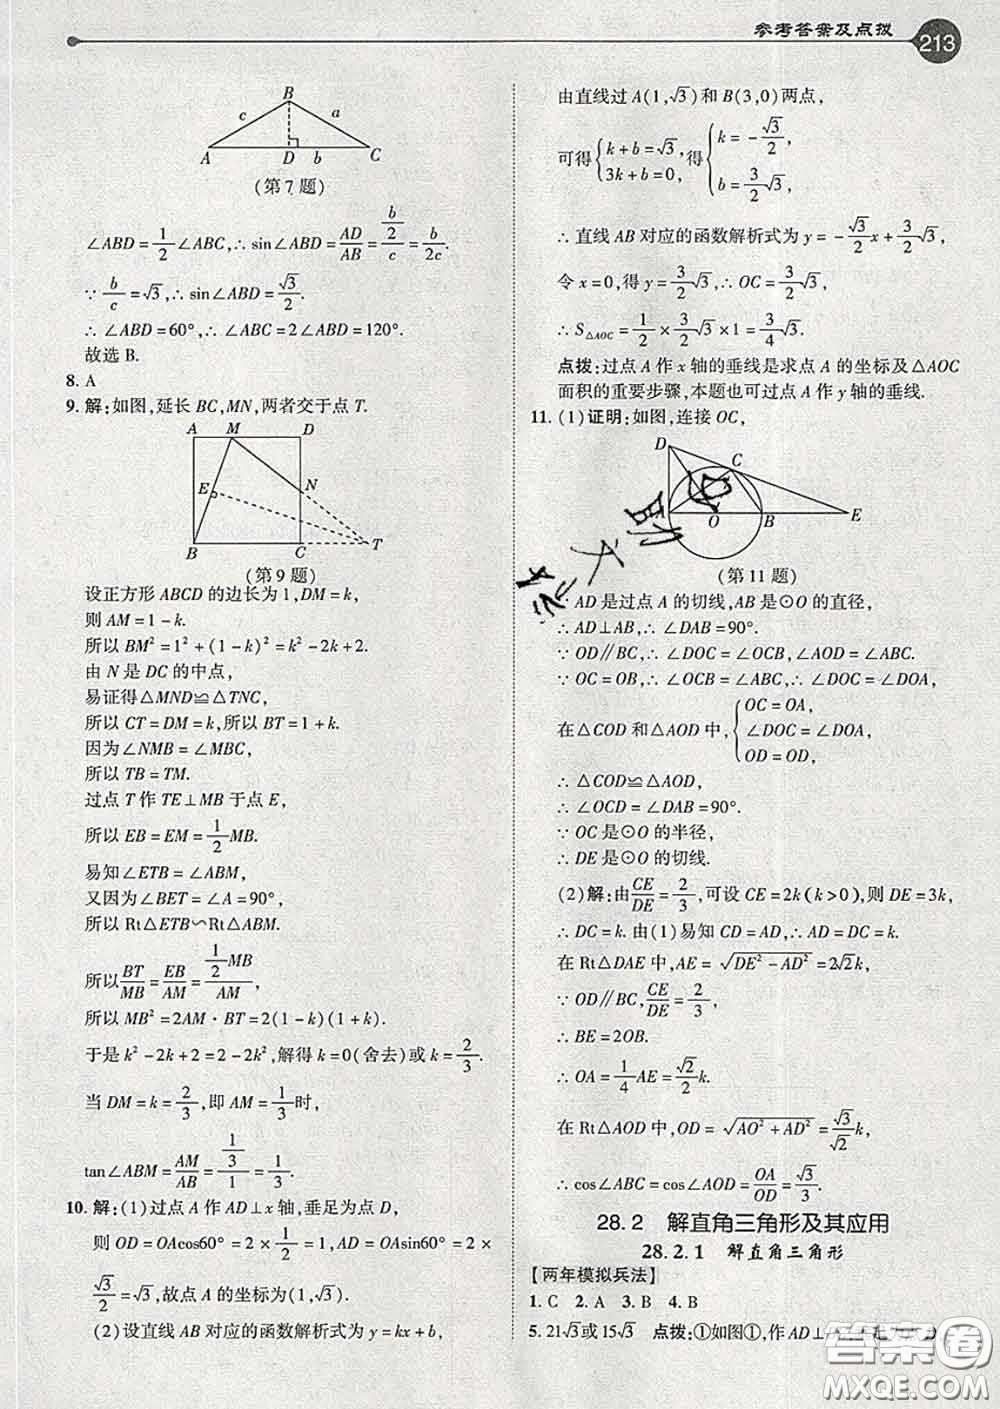 参考答案及点拨 213
B
c a
A D b C
(第7题)
∠ABD=1/2∠ABC,∴sin∠ABD=AD/AB=(b/2)/c=b/2c.
∵b/c=√3,∴sin∠ABD=√3/2.
∴∠ABD=60°,∴∠ABC=2∠ABD=120°.
故选B.
8. A
9. 解:如图,延长BC,MN,两者交于点T.
A M D
E N
B C T
(第9题)
设正方形ABCD的边长为1,DM=k,
则AM=1-k.
所以BM²=1²+(1-k)²=k²-2k+2.
由N是DC的中点,
易证得△MND≌△TNC,
所以CT=DM=k,所以BT=1+k.
因为∠NMB=∠MBC,
所以TB=TM.
过点T作TE⊥MB于点E,
所以EB=EM=1/2MB.
易知∠ETB=∠ABM,
又因为∠BET=∠A=90°,
所以Rt△ETB∽Rt△ABM.
所以BT/MB=EB/AM=(1/2MB)/AM,
所以MB²=2AM·BT=2(1-k)(1+k).
于是k²-2k+2=2-2k²,解得k=0(舍去)或k=2/3.
当DM=k=2/3,即AM=1/3时,
tan∠ABM=AM/AB=(1/3)/1=1/3.
10. 解:(1)过点A作AD⊥x轴,垂足为点D,
则OD=OAcos60°=2×1/2=1,AD=OAsin60°=2×
√3/2=√3,故点A的坐标为(1,√3).
(2)设直线AB对应的函数解析式为y=kx+b,
由直线过A(1,√3)和B(3,0)两点,
可得{k+b=√3, 3k+b=0, 得{k=-√3/2, b=3/2√3,
∴直线AB对应的函数解析式为y=-√3/2x+3/2√3,
令x=0,得y=3/2√3,∴OC=3/2√3,
∴S△AOC=1/2×3/2√3×1=3/4√3.
点拨:过点A作x轴的垂线是求点A的坐标及△AOC
面积的重要步骤,本题也可过点A作y轴的垂线.
11. (1)证明:如图,连接OC,
D
C
A O B E
(第11题)
∵AD是过点A的切线,AB是⊙O的直径,
∴AD⊥AB,∴∠DAB=90°.
∵OD∥BC,∴∠DOC=∠OCB,∠AOD=∠ABC.
∵OC=OB,∴∠OCB=∠ABC,∴∠DOC=∠DOA,
在△COD和△AOD中,{OC=OA, ∠DOC=∠DOA, OD=OD,
∴△COD≌△AOD,
∴∠OCD=∠DAB=90°.
∵OC是⊙O的半径,
∴DE是⊙O的切线.
(2)解:由CE/DE=2/3,可设CE=2k(k>0),则DE=3k,
∴DC=k.由(1)易知CD=AD,∴AD=DC=k.
在Rt△DAE中,AE=√(DE²-AD²)=2√2k.
∵OD∥BC,CE/DE=2/3,
∴BE=2OB.
∴OA=1/4AE=√2/2k.
在Rt△AOD中,OD=√(AO²+AD²)=√3/√2k,
∴cos∠ABC=cos∠AOD=OA/OD=√3/3.
28.2 解直角三角形及其应用
28.2.1 解直角三角形
【两年模拟兵法】
1. C 2. A 3. B 4. B
5. 21√3或15√3 点拨:①如图①,作AD⊥
答案圈
MXQE.COM